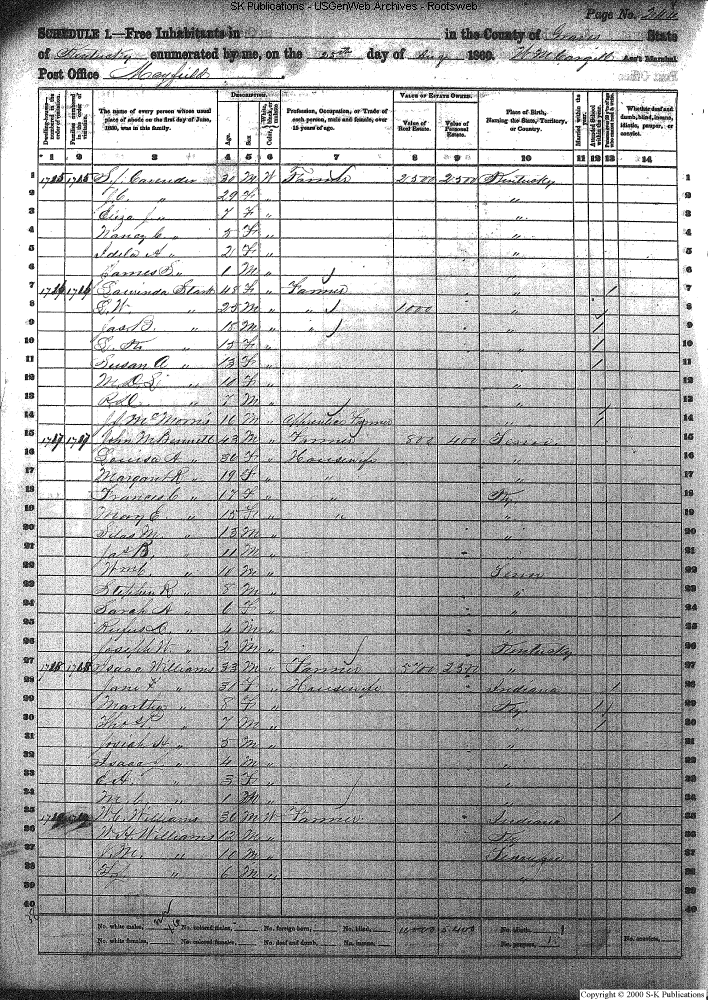 SK Publications - USGenWeb Archives - Rootsweb
Page No.
SCHEDULE 1.—Free Inhabitants in in the County of Graves State
of Kentucky enumerated by me, on the 25th day of Aug 1860. Wm Cargill Ass't Marshal.
Post Office Mayfield
Dwelling-houses—numbered in the order of visitation.
Families numbered in the order of visitation.
The name of every person whose usual place of abode on the first day of June, 1860, was in this family.
DESCRIPTION.
Age.
Sex.
Color, White, black, or mulatto.
Profession, Occupation, or Trade of each person, male and female, over 15 years of age.
VALUE OF ESTATE OWNED.
Value of Real Estate.
Value of Personal Estate.
Place of Birth, Naming the State, Territory, or Country.
Married within the year.
Attended School within the year.
Persons over 20 y'rs of age who cannot read & write.
Whether deaf and dumb, blind, insane, idiotic, pauper, or convict.
1 2 3 4 5 6 7 8 9 10 11 12 13 14
1 1715 1715 Cavender 31 M W Farmer 2500 2500 Kentucky 1
2 " 29 F " " 2
3 Eliza J " 7 F " " 3
4 Nancy C " 5 F " " 4
5 Adela A " 2 F " " 5
6 James B " 1 M " " 6
7 1716 1716 Stark 48 F " Farmer " / 7
8 L. W. " 25 M " " 1000 " 8
9 Jas B. " 18 M " " " / 9
10 " 15 F " " / 10
11 Susan A " 13 F " " / 11
12 M D L " 11 F " " 12
13 R D " 7 M " " 13
14 Mc Morris 16 M " Apprentice Farmer " / 14
15 1717 1717 John M Bennett 43 M " Farmer 800 400 Tenn 15
16 Louisa A " 36 F " Housewife " 16
17 Margaret R " 19 F " " " 17
18 Frances C " 17 F " " Ky 18
19 Mary E " 15 F " " " 19
20 Silas M " 13 M " " 20
21 Jas B. " 11 M " " 21
22 Wm C. " 10 M " Tenn 22
23 Stephen R " 8 M " " 23
24 Sarah A " 6 F " " 24
25 Rufus L " 4 M " " 25
26 Joseph W " 2 M " Kentucky 26
27 1718 1718 Isaac Williams 33 M " Farmer 5700 2500 " 27
28 Jane F " 31 F " Housewife Indiana / 28
29 Martha " 8 F " Ky / 29
30 Thos " 7 M " " / 30
31 Josiah A " 5 M " " 31
32 Isaac " 4 M " " 32
33 E A " 3 F " " 33
34 " 1 M " " 34
35 1719 W C Williams 36 M W Farmer Indiana / 35
36 W H Williams 12 M " Ky 36
37 " 10 M " 37
38 " 6 M " " 38
39 39
40 40
No. white males, No. colored males, No. foreign born, No. blind, 10000 5400 No. idiotic,
No. white females, No. colored females, No. deaf and dumb, No. insane, No. paupers, No. convicts,
Copyright © 2000 S-K Publications